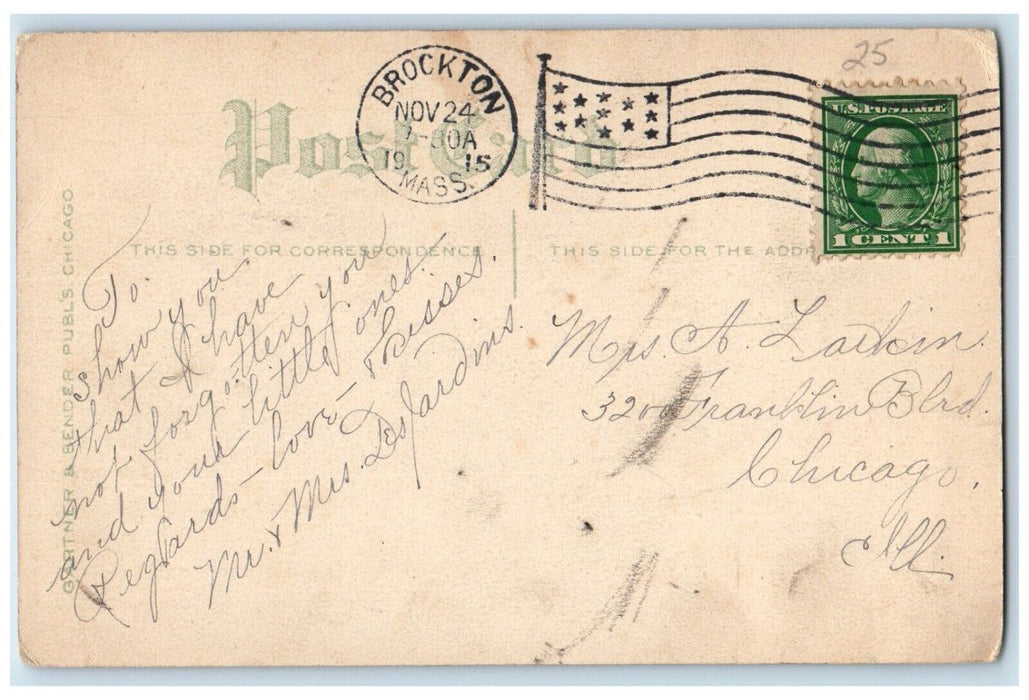 25
BROCKTON
NOV 24
-30A
19 15
MASS.
U.S. POSTAGE
1 CENT 1
Post Card
THIS SIDE FOR CORRESPONDENCE
THIS SIDE FOR THE ADDR
GARTNER & BENDER PUBL'S. CHICAGO
To.
show you.
that I have
not forgotten you
and your little ones.
Regards - love - & kisses.
Mr. & Mrs. DesJardins.
Mrs. A. Larkin.
3200 Franklin Blvd.
Chicago,
Ill.